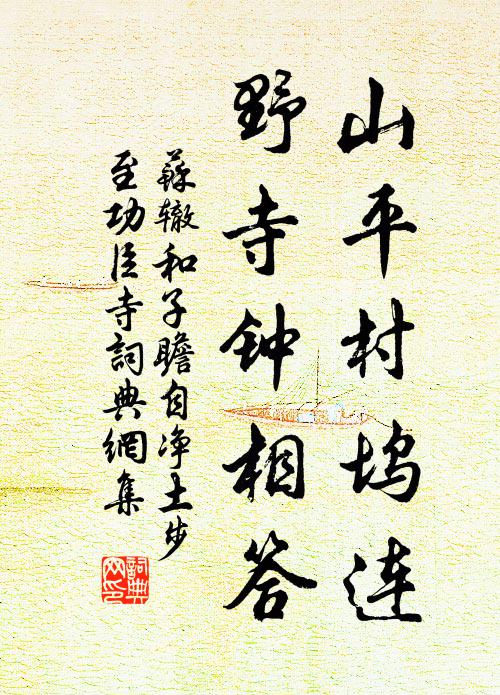 山平村坞连
野寺钟相答
蘇辙和子瞻自净土步
至功臣寺詞典網集
詞典网印